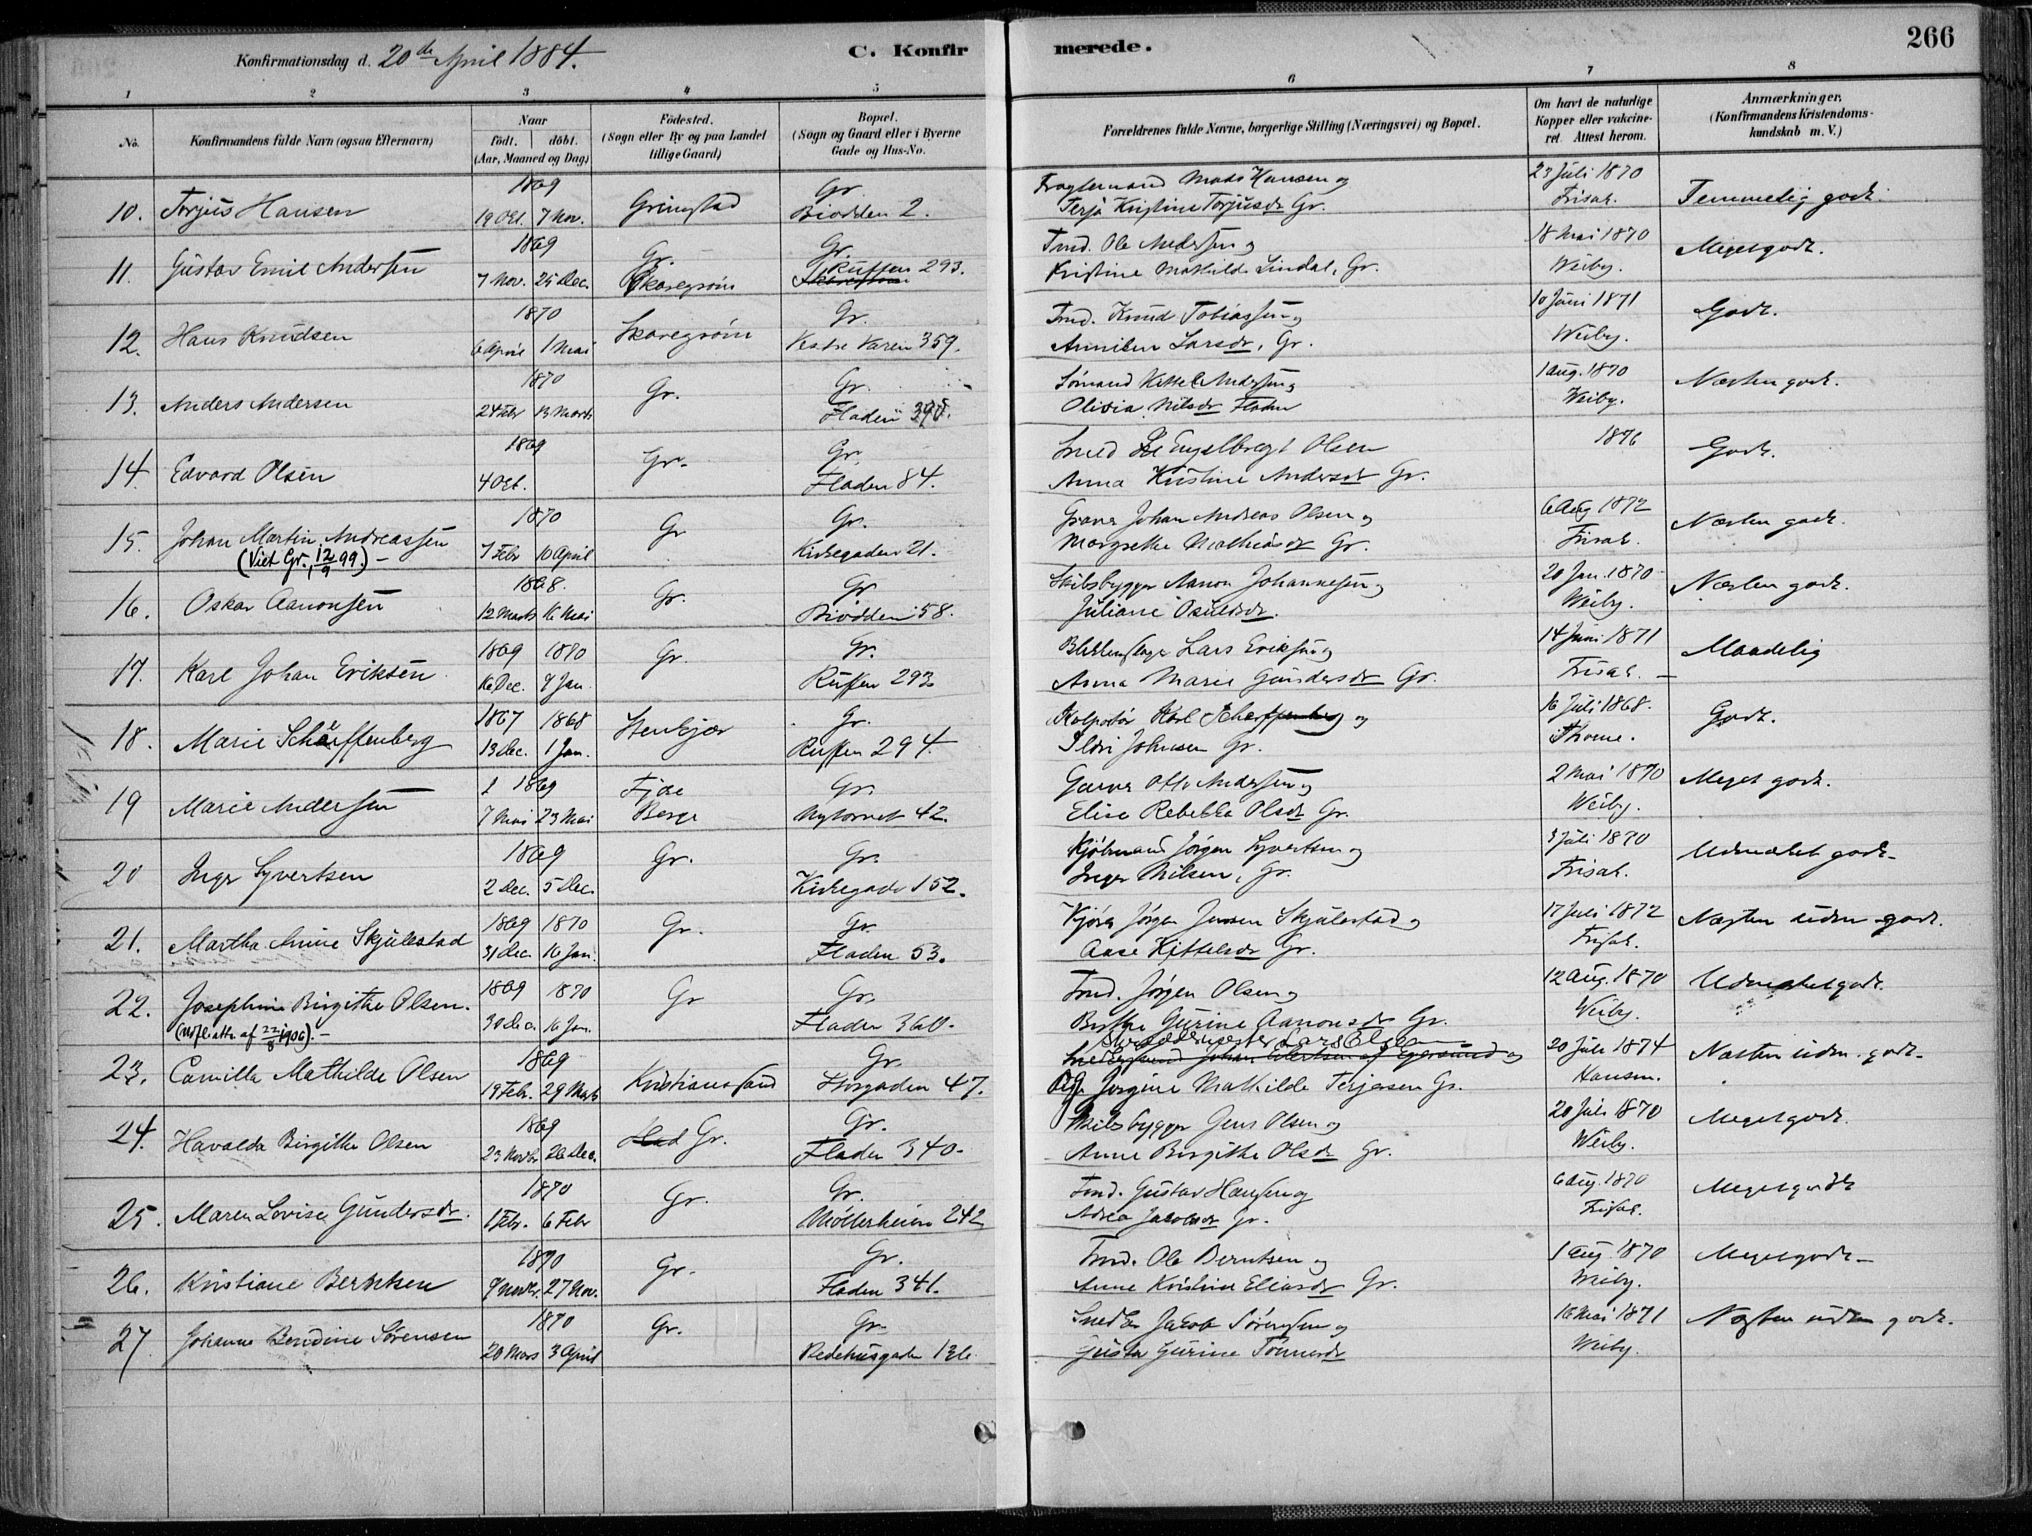 266
Konfirmationsdag d. 20de April 1884.
C. Konfirmerede.
1 2 3 4 5 6 7 8
No.
Konfirmandens fulde Navn (ogsaa Efternavn)
Naar
födt. döbt.
(Aar, Maaned og Dag)
Födested.
(Sogn eller By og paa Landet
tillige Gaard)
Bopæl.
(Sogn og Gaard eller i Byerne
Gade og Hus-No.
Forældrenes fulde Navne, borgerlige Stilling (Næringsvei) og Bopæl.
Om havt de naturlige
Kopper eller vakcine-
ret. Attest herom.
Anmærkninger.
(Konfirmandens Kristendoms-
kundskab m. V.)
1869 Gr. Fragtemand Mads Hansen og 23 Juli 1870
10. Torjus Hansen 19 Oct. 7 Nov. Grimstad Biodden 2. Terja Kristine Torjusdr Gr. Frisak. Temmelig godt.
1869 Gr. Gr. Tmd. Ole Andersen og 18 Mai 1870
11. Gustav Emil Andersen 7 Nov. 25 Dec. Skaregrøm Ruffen 293. Kristine Mathilde Lindal, Gr. Weiby. Meget godt.
1870 Gr. Tmd. Knud Tobiassen og 10 Juni 1871
12. Hans Knudsen 6 April 1 Mai Skaregrøm Vestre Varen 359. Larsdr, Gr. Weiby. Godt.
1870 Gr. Sømand Kittel Andersen og 1 Aug. 1870
13. Anders Andersen 24 Febr 13 Marts Gr. Fladen Olivia Nilsdr Fladen Weiby. Næsten godt.
1869 Gr. Smed Engelbregt Olsen 1876
14. Edvard Olsen 4 Oct. Gr. Fladen 84. Anna Kristine Andersdr Gr. Godt.
1870 Gr. Johan Andreas Olsen og 6 Aug 1872
15. Johan Martin Andreassen 7 Febr 10 April Gr Kirkegaden 21. Margrethe Mathiasdr Gr. Frisak. Næsten godt.
(Viet Gr., 12/9 99.) –
1868. Gr. Skibsbygger Aanon Johannesen og 20 Jan. 1870
16. Oskar Aanonsen 12 Marts 16 Mai Gr. Biodden 58. Juliane Osuldsdr. Weiby. Næsten godt.
1869 1870 Gr. Blikkenslager Lars Eriksen og 14 Juni 1871
17. Karl Johan Eriksen 16 Dec. 9 Jan. Gr. Ruffen 293 Anna Marie Gundersdr Gr. Frisak. – Maadelig
1867 1868 Gr. Kolportør Karl Scharffenberg og 16 Juli 1868.
18. Marie Scharffenberg 13 Dec. 1 Jan. Stenkjær Ruffen 294. Johnsen Gr. Thome. Godt.
1869 Fjære Gr. Garver Otto Andersen og 2 Mai 1870
19 Marie Andersen 7 Mai 23 Mai Berge Nytorvet 42. Elise Rebekka Olsdr Gr. Weiby. Meget godt.
1869 Gr. Kjøbmand Jørgen Syvertsen og 3 Juli 1870
20 Inger Syvertsen 2 Dec. 5 Dec. Gr. Kirkegade 152. Inger Nilsen, Gr. Frisak. Udmærket godt.
1869 1870 Gr Jørgen Jensen Skjulestad og 17 Juli 1872
21. Martha Anine Skjulestad 31 Dec. 16 Jan. Gr. Fladen 53. Aase Kittelsdr Gr. Frisak. Næsten udm. godt.
1869 1870 Gr. Tmd. Jørgen Olsen og 12 Aug. 1870
22. Josephine Birgithe Olsen. 30 Dec. 16 Jan. Gr Fladen 360. Berthe Gurine Aanonsdr Gr. Weiby. Udmærket godt.
(Utfl. att. af 22/8 1906). –
1869 Gr. Lars Olsen 20 Juli 1874
23. Camilla Mathilde Olsen 19 Febr. 29 Marts Kristianssand Storgaden 47. Johan Eilertsen af Egersund og Jørgine Mathilde Terjesen Gr. Hansen. Næsten udm. godt.
1869 Gr. Skibsbygger Jens Olsen og 20 Juli 1870
24. Havalda Birgithe Olsen 23 Novbr 26 Dec. Gr. Fladen 340. Anne Birgithe Olsdr Gr. Weiby. Meget godt.
1870 Gr. Tmd. Gustav Hansen og 6 Aug. 1870
25. Maren Lovise Gundersdr. 1 Febr. 6 Febr Gr. Møllerheien 242 Adrea Jacobsdr Gr. Frisak. Meget godt
1870 Gr. Tmd. Ole Berntsen og 1 Aug. 1870
26. Kristiane Berntsen 9 Novbr. 27 Nov. Gr. Fladen 341. Anne Kristine Eliasdr Gr. Weiby. Meget godt –
1870 Gr. Snedker Jakob Sørensen og 16 Mai 1871
27. Johanne Bendine Sørensen 20 Mars 3 April Gr. Bedehusgaden 136. Gurine Weiby. Næsten udm godt.